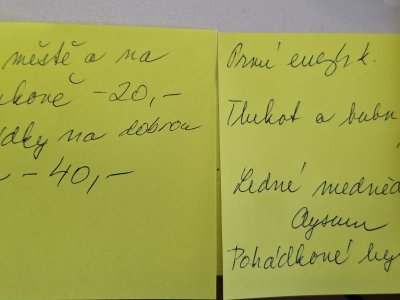 městě a na
ukově -20,-
dky na dobrou
- 40,-
První energ. k.
Tlukot a bubn
Ledné medvěd
Aysun
Pohádkové by